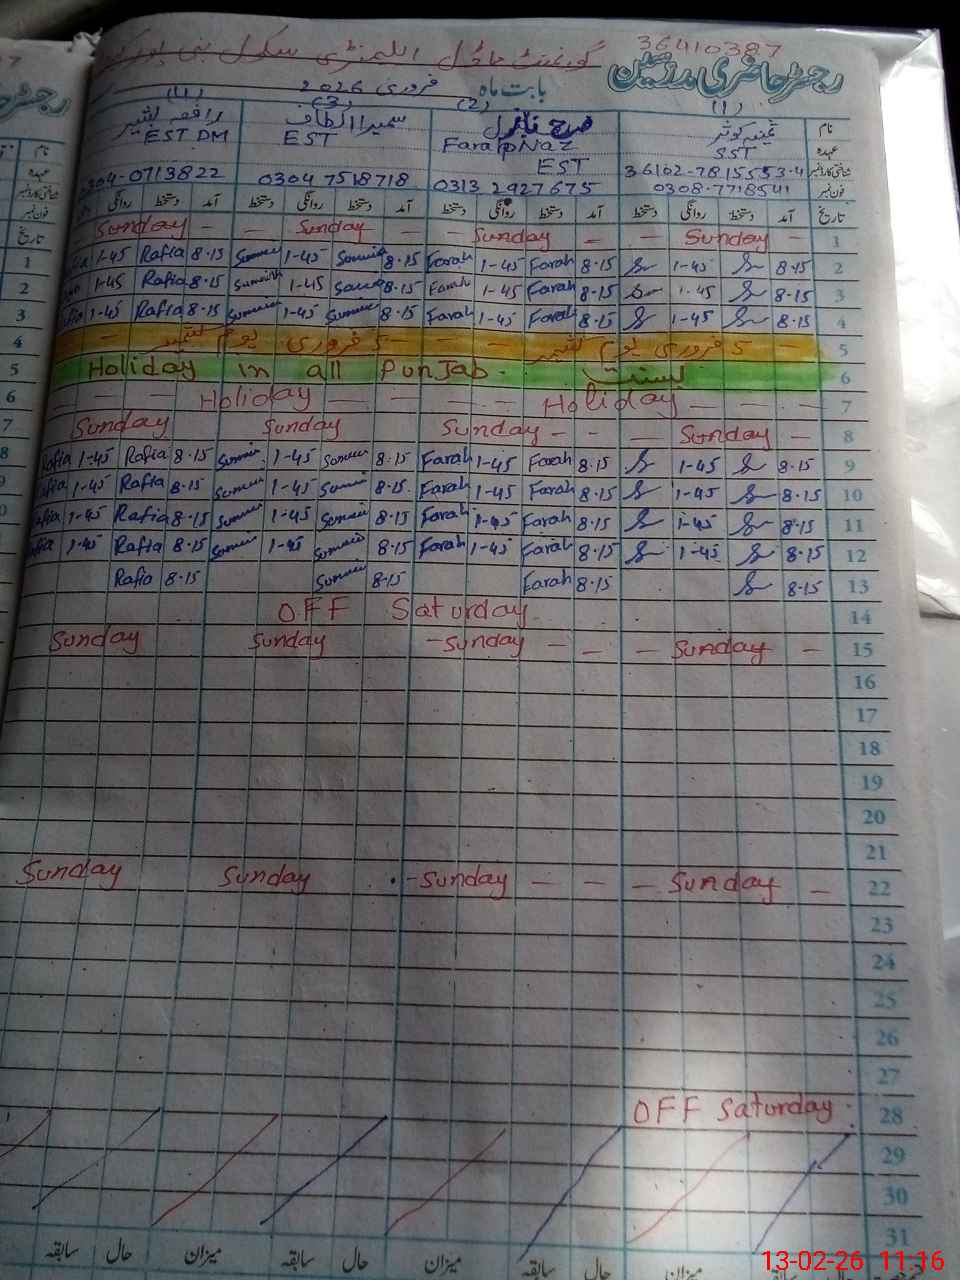 36410387
رجسٹر حاضری مدرسین
بابت ماہ فروری 2026
(1) (2) (3) (1)
نام ثمینہ کوثر فرح ناز سمیرا الطاف
عہدہ SST Farah Naz EST EST EST DM
شناختی کارڈ نمبر 36102-7815553-4
فون نمبر 0308-7718541 0313 2927675 0304 7518718 0304-0713822
تاریخ آمد دستخط روانگی دستخط آمد دستخط روانگی دستخط آمد دستخط روانگی دستخط آمد دستخط روانگی
1 Sunday Sunday Sunday Sunday
2 8-15 1-45 8-15 Farah 1-45 Farah 8-15 1-45 8-15 Rafia 1-45
3 8-15 1-45 8-15 Farah 1-45 Farah 8-15 1-45 8-15 Rafia 1-45
4 8-15 1-45 8-15 Farah 1-45 Farah 8-15 1-45 8-15 Rafia 1-45
5 5 فروری یوم کشمیر 5 فروری یوم کشمیر
6 Holiday in all Punjab بسنت
7 Holiday Holiday
8 Sunday Sunday Sunday Sunday
9 8-15 1-45 8-15 Farah 1-45 Farah 8-15 1-45 8-15 Rafia 1-45 Rafia
10 8-15 1-45 8-15 Farah 1-45 Farah 8-15 1-45 8-15 Rafia 1-45 Rafia
11 8-15 1-45 8-15 Farah 1-45 Farah 8-15 1-45 8-15 Rafia 1-45 Rafia
12 8-15 1-45 8-15 Farah 1-45 Farah 8-15 1-45 8-15 Rafia 1-45 Rafia
13 8-15 8-15 Farah 8-15 8-15 Rafia
14 OFF Saturday
15 Sunday Sunday Sunday Sunday
16
17
18
19
20
21
22 Sunday Sunday Sunday Sunday
23
24
25
26
27
28 OFF Saturday
29
30
31
میزان حال سابقہ میزان حال سابقہ میزان حال سابقہ
13-02-26 11:16